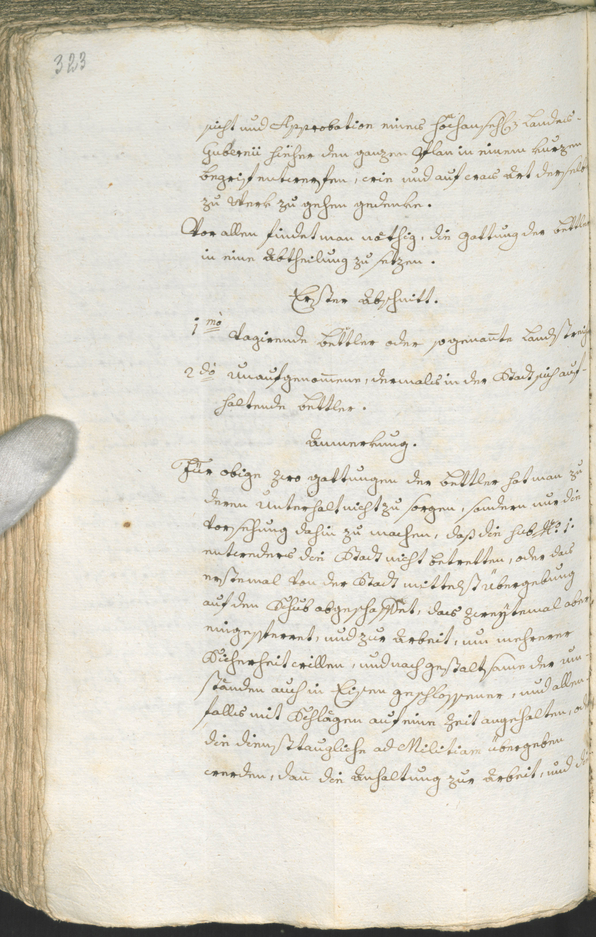 323
sicht und Approbation eines Hochansehl. Landes-
Gubernii hieher den ganzen Plan in einem kurzen
begrif entwerfen, wie und auf was Art derselbe
zu Werk zu gehen gedenke.
Vor allen findet man nöthig, die Gattung der Bettler
in eine Abtheilung zu setzen.
Erster Abschnitt.
1mo Vagirende Bettler oder sogenante Landstreicher
2do Unaufgenomene, dermalis in der Stadt sich auf-
haltende Bettler.
Anmerkung.
Für obige zwo Gattungen der Bettler hat man zu
deren Unterhalt nicht zu sorgen, sondern nur die
Vorsehung dahin zu machen, daß die sub No. 1.
entweders die Stadt nicht betretten, oder das
erstemal von der Stadt mittelst Übergebung
auf den Schub abgeschaffet, das zweytemal aber
eingesperret, und zur Arbeit, um mehrerer
Sicherheit willen, und nach gestaltsame der um-
ständen auch in Eisen geschlossener, und allen-
falls mit Schlägen auf eine Zeit angehalten, oder
die diensttaugliche ad Militiam übergeben
werden, dan die Anhaltung zur Arbeit, und die